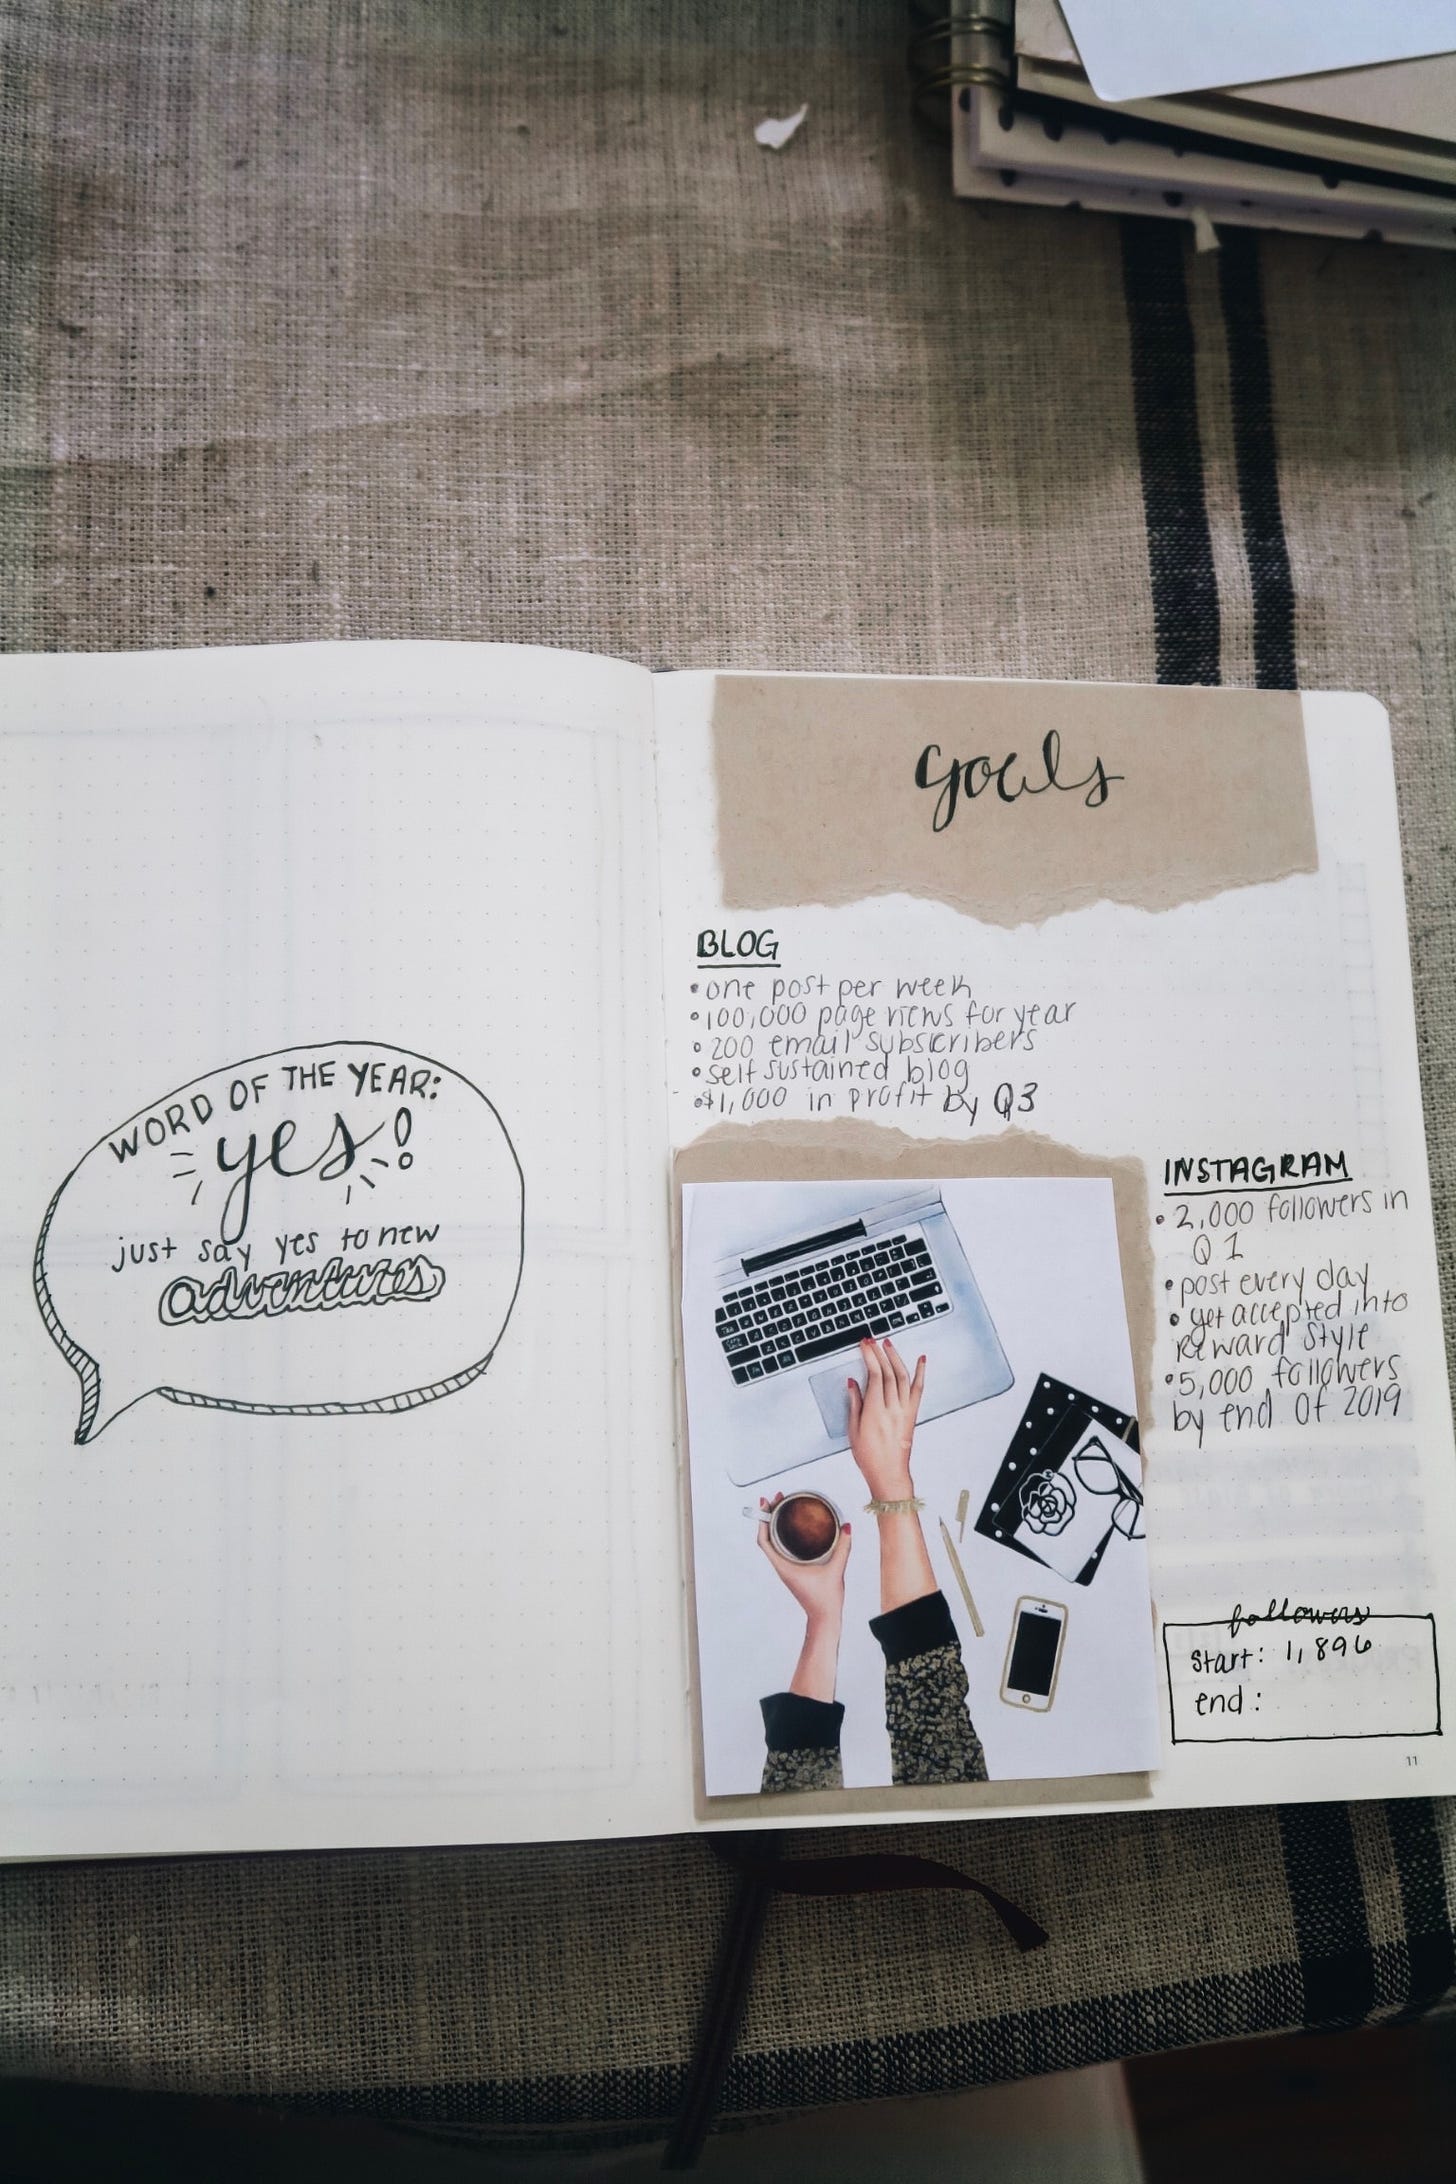 WORD OF THE YEAR:
yes!
just say yes to new
adventures
goals
BLOG
• one post per week
• 100,000 page views for year
• 200 email subscribers
• self sustained blog
• $1,000 in profit by Q3
INSTAGRAM
• 2,000 followers in
Q1
• post every day
• get accepted into
Reward Style
• 5,000 followers
by end of 2019
followers
start: 1,896
end:
11